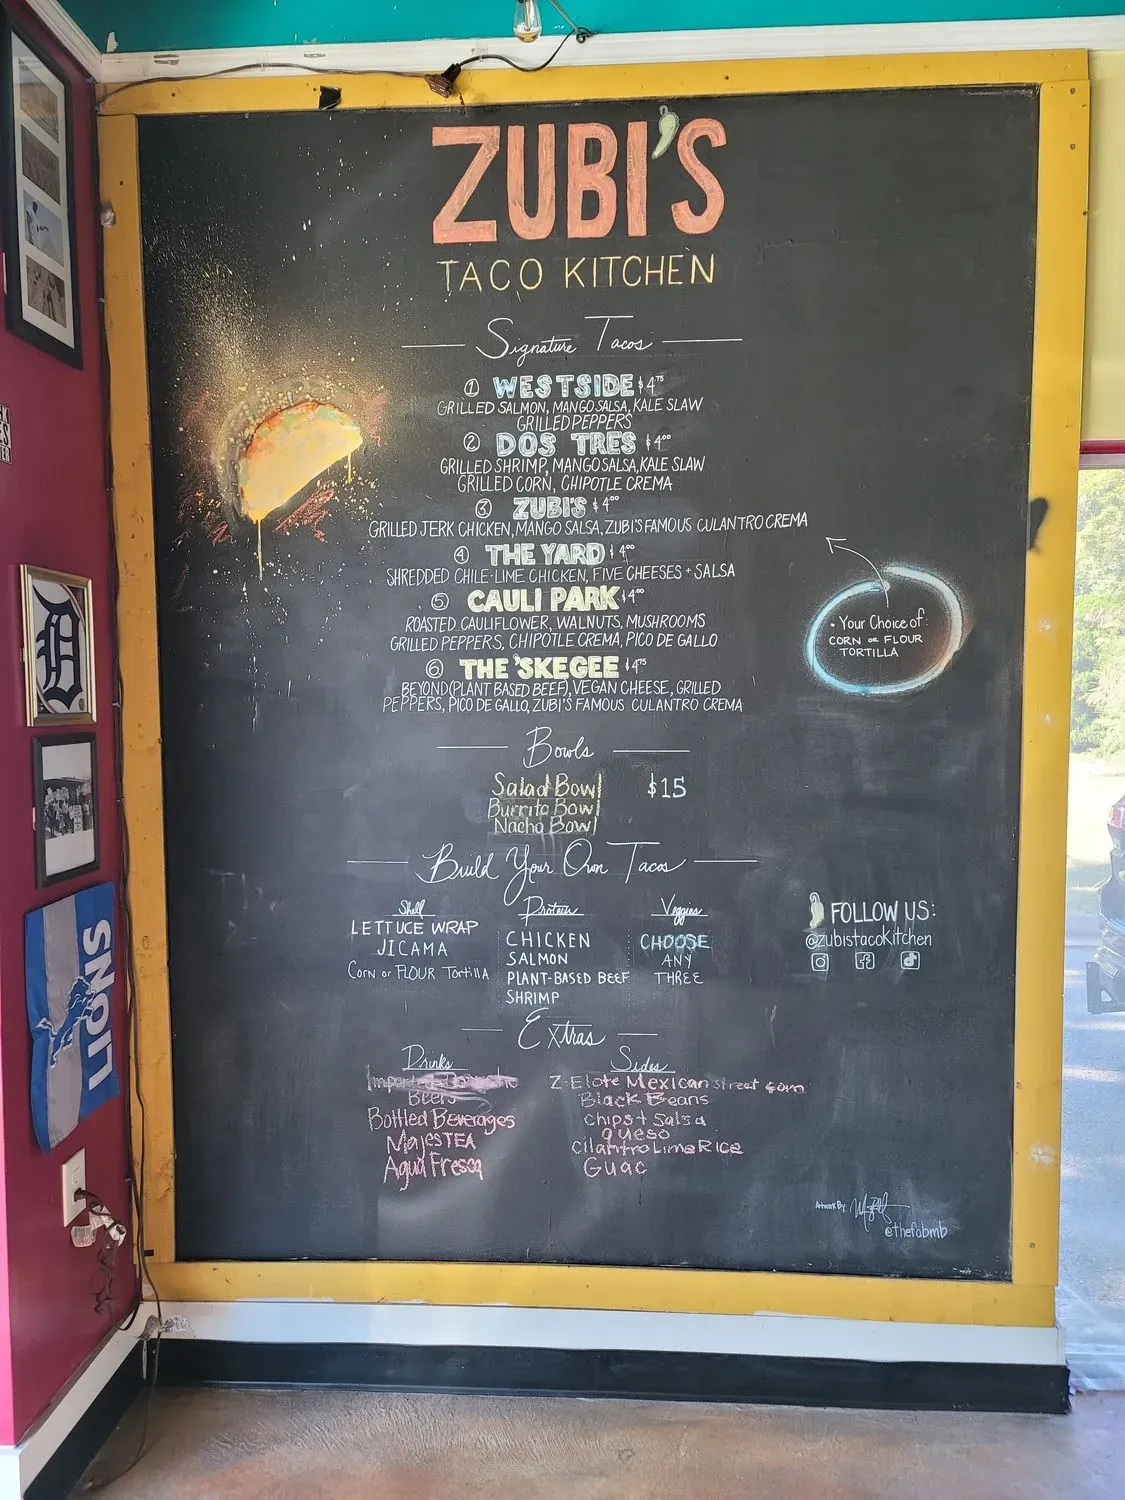 ZUBI'S
TACO KITCHEN
Signature Tacos
① WESTSIDE $4.75
GRILLED SALMON, MANGO SALSA, KALE SLAW
GRILLED PEPPERS
② DOS TRES $4.00
GRILLED SHRIMP, MANGO SALSA, KALE SLAW
GRILLED CORN, CHIPOTLE CREMA
③ ZUBI'S $4.00
GRILLED JERK CHICKEN, MANGO SALSA, ZUBI'S FAMOUS CULANTRO CREMA
④ THE YARD $4.00
SHREDDED CHILE-LIME CHICKEN, FIVE CHEESES + SALSA
⑤ CAULI PARK $4.00
ROASTED CAULIFLOWER, WALNUTS, MUSHROOMS
GRILLED PEPPERS, CHIPOTLE CREMA, PICO DE GALLO
⑥ THE 'SKEGEE $4.75
BEYOND (PLANT BASED BEEF), VEGAN CHEESE, GRILLED
PEPPERS, PICO DE GALLO, ZUBI'S FAMOUS CULANTRO CREMA
• Your Choice of:
CORN or FLOUR
TORTILLA
Bowls
Salad Bowl $15
Burrito Bowl
Nacho Bowl
Build Your Own Tacos
Shell
LETTUCE WRAP
JICAMA
Corn or FLOUR TortillA
Protein
CHICKEN
SALMON
PLANT-BASED BEEF
SHRIMP
Veggies
CHOOSE
ANY
THREE
FOLLOW US:
@zubistacokitchen
Extras
Drinks
Beers
Bottled Beverages
MajesTEA
Agua Fresca
Sides
Z-Elote Mexican street corn
Black Beans
Chips + Salsa
queso
Cilantro Lime Rice
Guac
Artwork By:
@thefabmb
D
LIONS